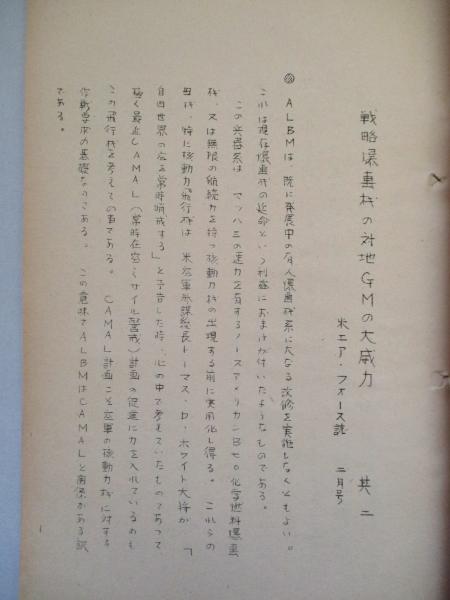 戦略爆撃機の対地GMの大威力　其二
米エア・フォース誌　二月号
◎ ALBMは、既に発展中の有人爆撃機系に大なる改修を実施しなくともよい。
これは現存爆撃機の延命という利益におまけが付いたようなものである。
この兵器系は マッハ三の速力を有するノースアメリカンB七〇化学燃料爆撃
機、又は無限の航続力を持つ核動力機の出現する前に実用化し得る。 これらの
母機、特に核動力飛行機は 米空軍参謀総長トーマス・D・ホワイト大将が 「
自由世界の広を常時哨戒する」と予言した時、心の中で考えていたものであって
極く最近CAMAL(常時在空ミサイル警戒)計画の促進に力を入れているのも
この飛行機を考えての事である。 CAMAL計画こそ空軍の核動力機に対する
作戦要求の基礎なのである。 この意味でALBMはCAMALと関係がある訳
である。
1